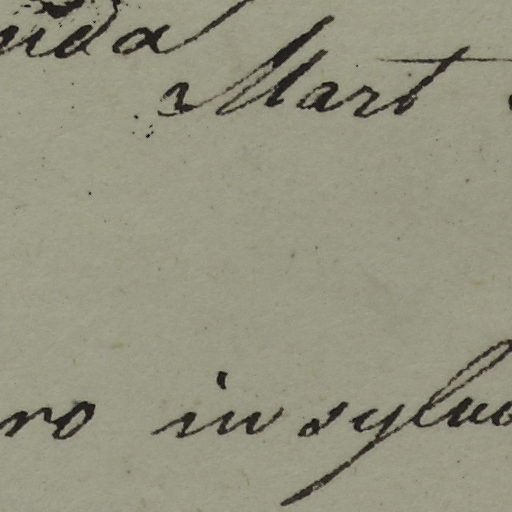 uda
Mart
ro in sylva